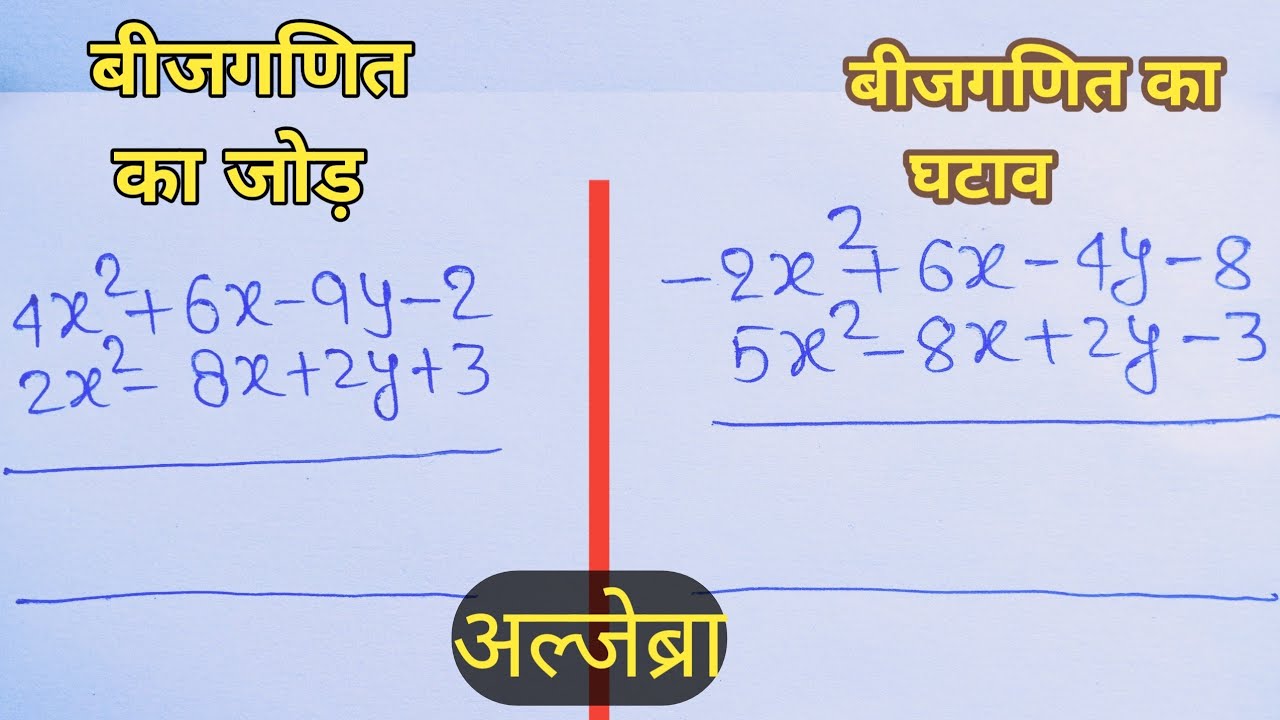 बीजगणित
का जोड़
4x²+6x-9y-2
2x²- 8x+2y+3
बीजगणित का
घटाव
-2x²+6x-4y-8
5x²-8x+2y-3
अल्जेब्रा